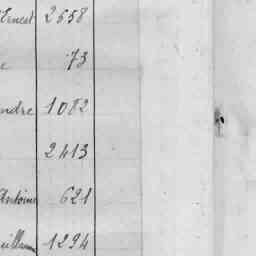 Ernest 2658
e 73
ndre 1082
2413
Antoine 621
uillaume 1294